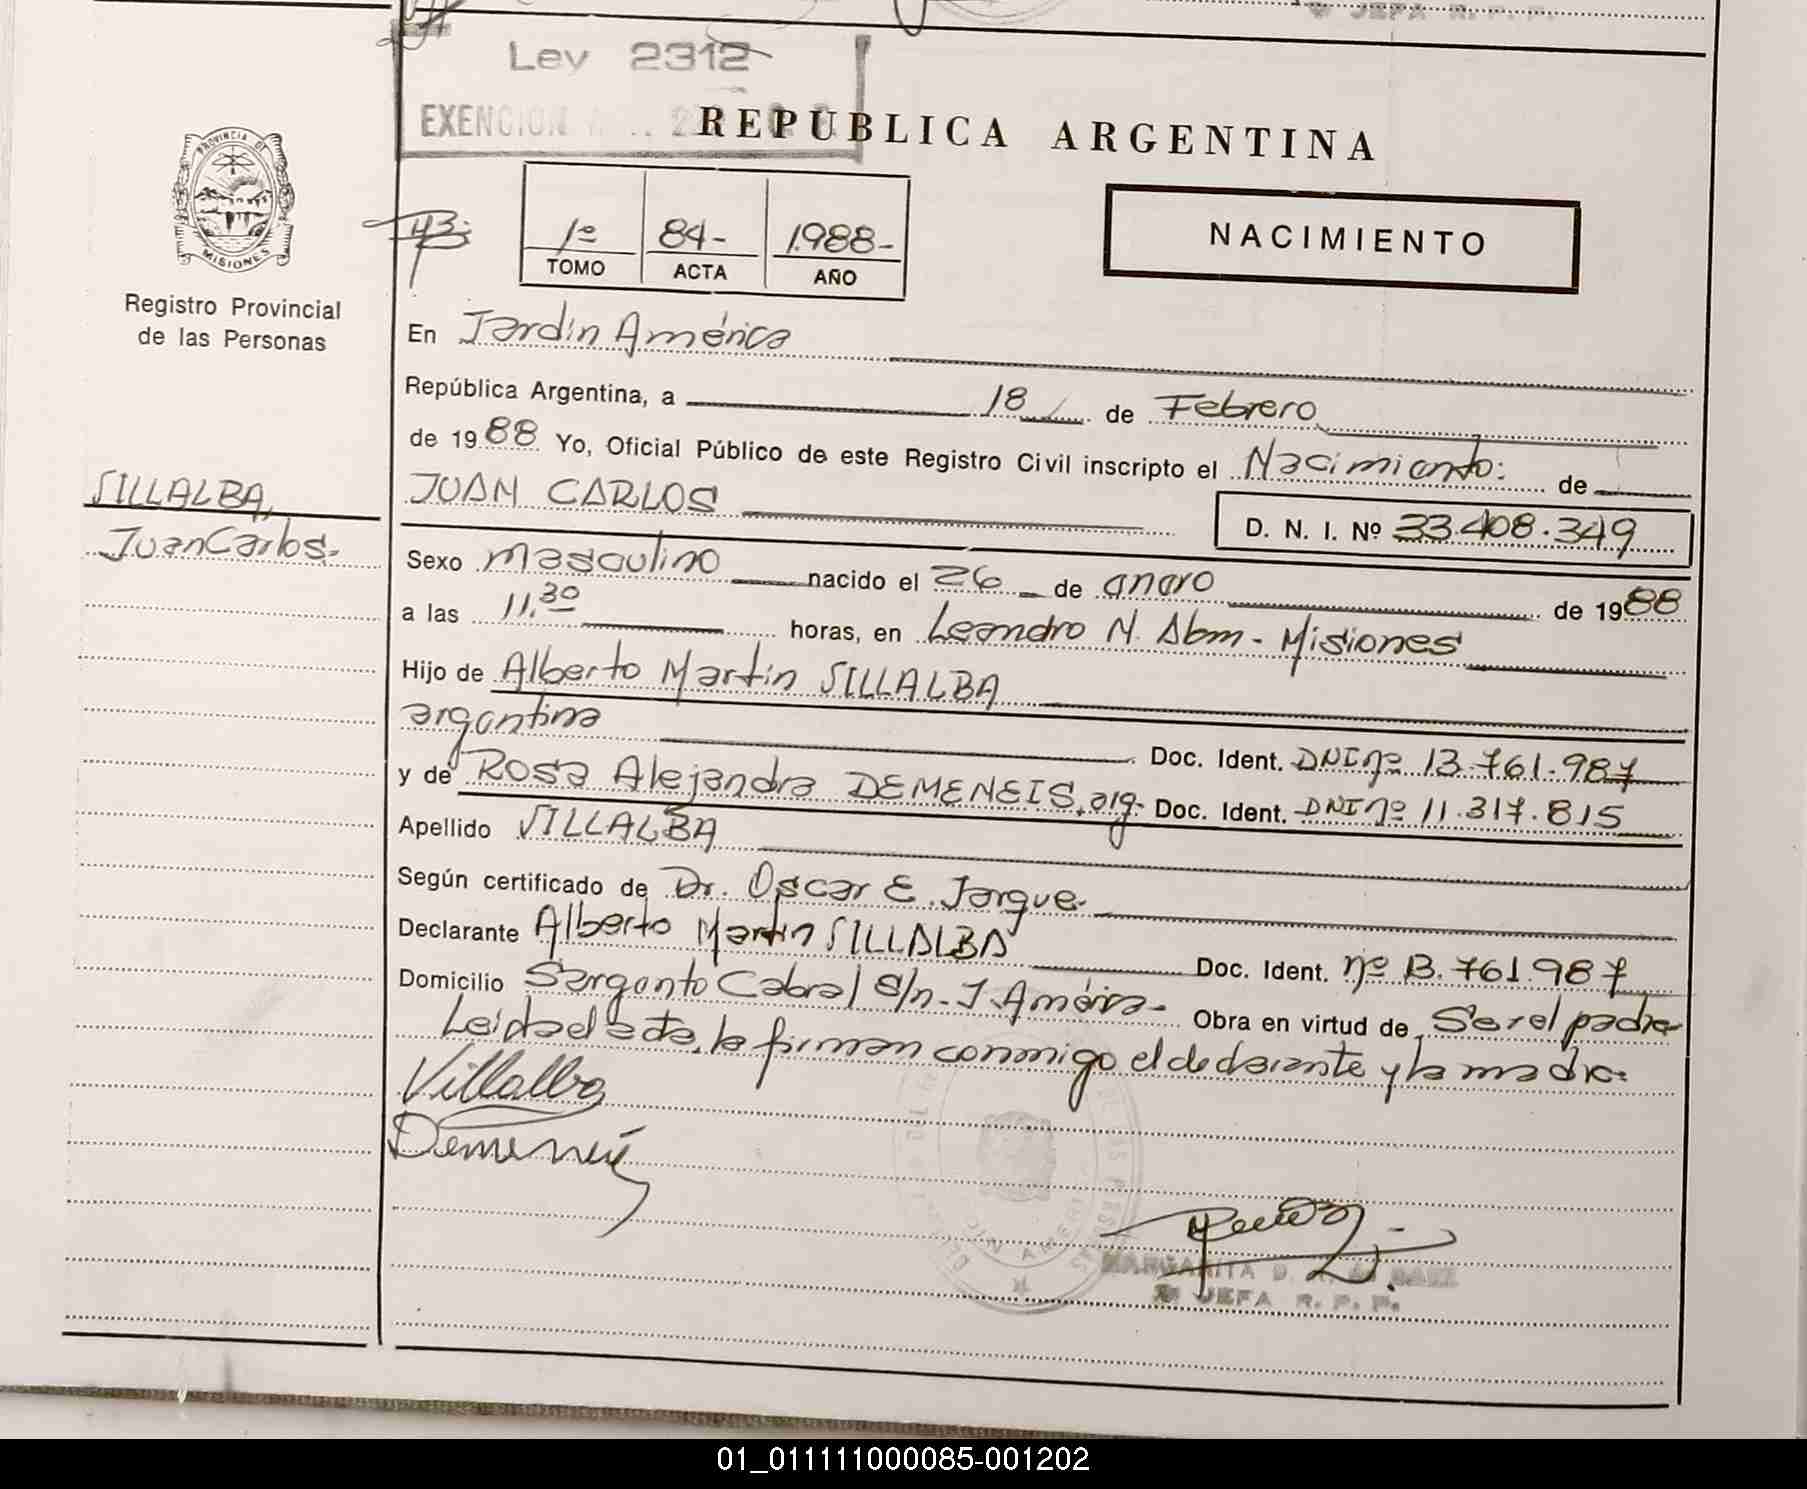 JEFA R. P. P.
Ley 2312
EXENCION
REPUBLICA ARGENTINA
PROVINCIA DE
MISIONES
1º 84- 1988-
TOMO ACTA AÑO
NACIMIENTO
Registro Provincial
de las Personas
En Jardín América
República Argentina, a 18 de Febrero
de 1988 Yo, Oficial Público de este Registro Civil inscripto el Nacimiento: de
VILLALBA,
JUAN CARLOS
D. N. I. Nº 33.408.349
Juan Carlos.
Sexo masculino nacido el 26 de enero de 1988
a las 11.30 horas, en Leandro N. Alem - Misiones
Hijo de Alberto Martin VILLALBA
argentina Doc. Ident. DNI nº 13.761.987
y de Rosa Alejandra DEMENEIS, arg. Doc. Ident. DNI nº 11.317.815
Apellido VILLALBA
Según certificado de Dr. Oscar E. Jorgue
Declarante Alberto Martin VILLALBA Doc. Ident. nº 13.761.987
Domicilio Sargento Cabral s/n. J. América- Obra en virtud de Ser el padre
Leida el acta, la firman conmigo el declarante y la madre.
Villalba
MARGARITA
JEFA R. P. P.
01_011111000085-001202